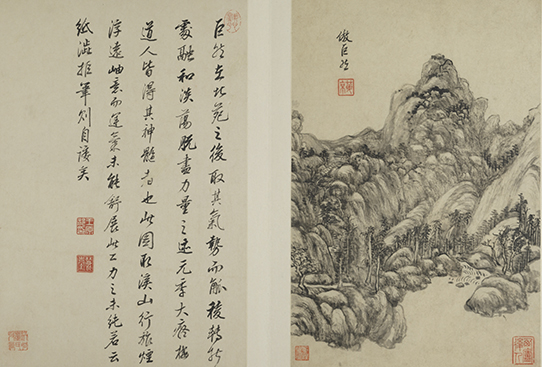 倣巨然
巨然在北苑之後取其氣勢而觚稜轉折
處融和淡蕩脫盡力量之迹元季大癡梅
道人皆得其神髓者也此圖取溪山行旅煙
浮遠岫意而運氣未能舒展此工力之未純若云
紙澁拒筆則自諉矣